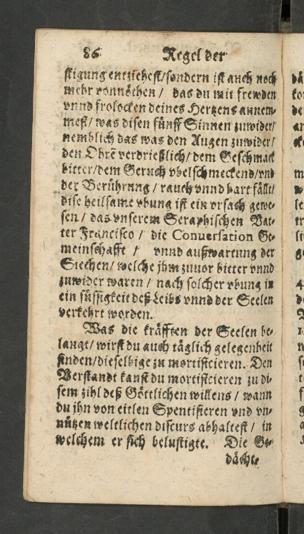 86 Regel der
stigung entziehest/sondern ist auch noch
mehr vonnöthen / das du mit frewden
vnnd frolocken deines Hertzens annem-
mest/ was disen fünff Sinnen zuwider/
nemblich das was den Augen zuwider/
den Ohrē verdrießlich/ dem Geschmack
bitter/dem Geruch vbelschmeckend/vnd
der Berührung / rauch vnnd hart fällt/
dise heilsame vbung ist ein vrsach gewe-
sen / das vnserem Seraphischen Vat-
ter Francisco / die Conuersation Ge-
meinschafft / vnnd außwartung der
Siechen/ welche jhm zuuor bitter vnnd
zuwider waren / nach solcher vbung in
ein süssigkeit deß Leibs vnnd der Seelen
verkehrt worden.
Was die kräfften der Seelen be-
langt/ wirst du auch täglich gelegenheit
finden/dieselbige zu mortificieren. Den
Verstandt kanst du mortificieren zu di-
sem zihl deß Göttlichen willens / wann
du jhn von eitlen Spentisieren vnd vn-
nützen weltlichen discurs abhaltest / in
welchem er sich belustigte. Die Ge-
dächt-